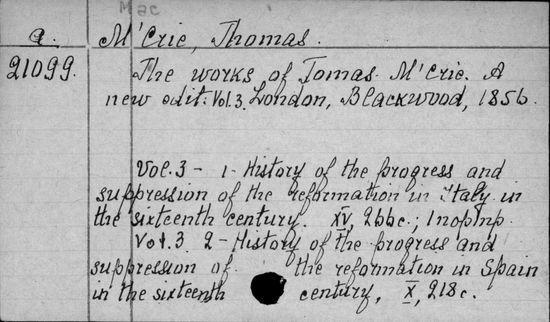 Mac
a. M'Crie, Thomas.
21099. The works of Tomas M'Crie. A
new edit. Vol.3. London, Blackwood, 1856.
Vol. 3 - 1 - History of the progress and
suppression of the reformation in Italy in
the sixteenth century. XV, 266c.;
Vol. 3. 2 - History of the progress and
suppression of the reformation in Spain
in the sixteenth century, X, 218c.